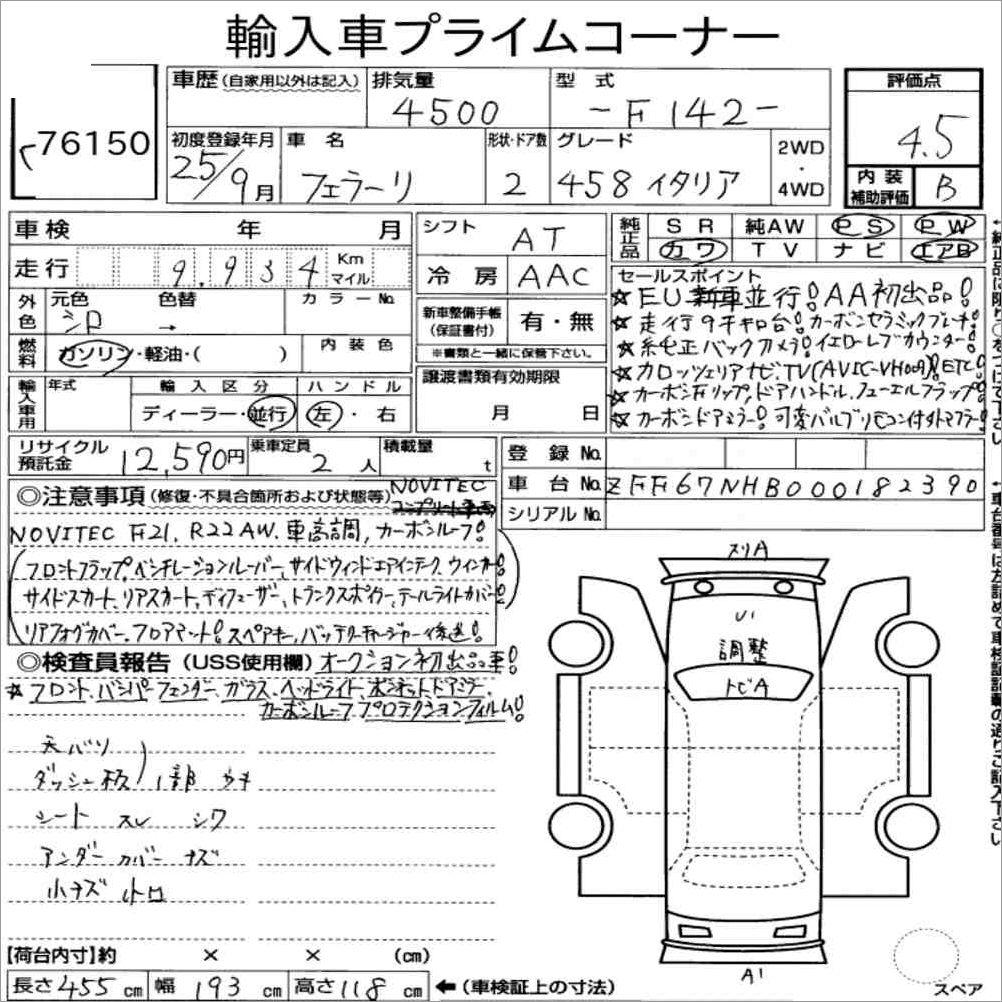 輸入車プライムコーナー
76150
車歴(自家用以外は記入) 排気量 4500 型式 -F142- 評価点 4.5
初度登録年月 25/9月 車名 フェラーリ 形状・ドア数 2 グレード 458イタリア 2WD・4WD 内装補助評価 B
車検 年 月 シフト AT 純正品 SR 純AW PS PW
走行 9,934 Km マイル 冷房 AAC カワ TV ナビ エアB
外色 元色 シロ 色替 → カラーNo. 新車整備手帳(保証書付) 有・無
※書類と一緒に保管下さい。
燃料 ガソリン・軽油・( ) 内装色
輸入車用 年式 輸入区分 ディーラー・並行 ハンドル 左・右
譲渡書類有効期限 月 日
セールスポイント
☆EU新車並行!AA初出品!
☆走行9千キロ台!カーボンセラミックブレーキ!
☆純正バックカメラ!イエローレブカウンター!
☆カロッツェリアナビ、TV(AVIC-VH009)!ETC!
☆カーボンFリップ、ドアハンドル、フューエルフラップ!
☆カーボンドアミラー!可変バルブリモコン付きマフラー!
リサイクル預託金 12,590円 乗車定員 2人 積載量 t
登録No.
車台No. ZFF67NHB000182390
シリアルNo.
◎注意事項(修復・不具合箇所および状態等) NOVITEC
コンプリート車両
NOVITEC F21、R22AW、車高調、カーボンルーフ!
フロントフラップ、ベンチレーションルーバー、サイドウィンドエアインテーク、ウインカー!
サイドスカート、リアスカート、ディフューザー、トランクスポイラー、テールライトカバー!
リアフォグカバー、フロアマット!スペアキー、バッテリーチャージャー後送!
◎検査員報告(USS使用欄) オークション初出品車!
☆フロント、バンパーフェンダー、ガラス、ヘッドライト、ボンネット、ドアミラー、
カーボンルーフプロテクションフィルム!
天バリ
ダッシュ板 1部 キズ
シート スレ シワ
アンダーカバー キズ
小キズ
スリA
U1
調整
トビA
A1
スペア
【荷台内寸】約 × × (cm)
長さ455cm 幅193cm 高さ118cm ←(車検証上の寸法)